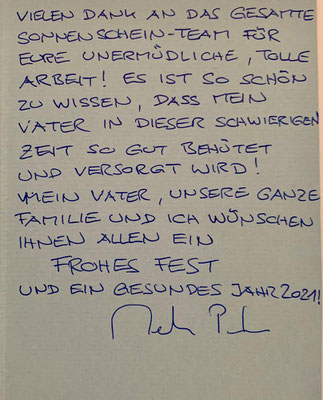 VIELEN DANK AN DAS GESAMTE
SONNENSCHEIN-TEAM FÜR
EURE UNERMÜDLICHE, TOLLE
ARBEIT! ES IST SO SCHÖN
ZU WISSEN, DASS MEIN
VATER IN DIESER SCHWIERIGEN
ZEIT SO GUT BEHÜTET
UND VERSORGT WIRD!
MEIN VATER, UNSERE GANZE
FAMILIE UND ICH WÜNSCHEN
IHNEN ALLEN EIN
FROHES FEST
UND EIN GESUNDES JAHR 2021!